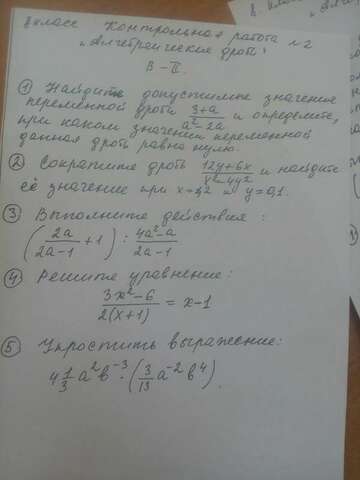 8 класс Контрольная работа №2
"Алгебраические дроби"
В-II.
① Найдите допустимые значения
переменной дроби (3+a)/(a²-2a) и определите,
при каком значении переменной
данная дробь равна нулю.
② Сократите дробь (12y+6x)/(x²-4y²) и найдите
её значение при x=1,2 и y=0,1.
③ Выполните действия:
(2a/(2a-1) + 1) : (4a²-a)/(2a-1)
④ Решите уравнение:
(3x²-6)/(2(x+1)) = x-1
⑤ Упростить выражение:
4 1/3 a²b⁻³ · (3/13 a⁻²b⁴)